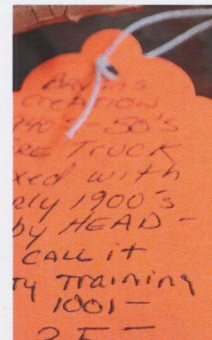 Creation
940's - 50's
RE Truck
xed with
rly 1900's
by HEAD -
CALL it
TY Training
1001 -
25 -